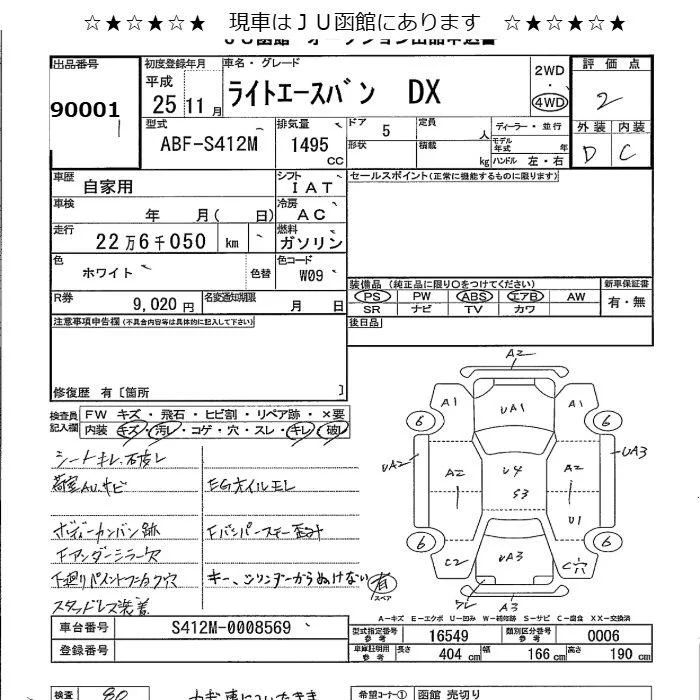 ☆★☆★☆★ 現車はＪＵ函館にあります ☆★☆★☆★
ＪＵ函館 オークション出品申込書
出品番号 初度登録年月 車名・グレード 2WD 評価点
90001 平成 25 11月 ライトエースバン DX 4WD 2
型式 排気量 ドア 5 定員 人 ディーラー・並行 外装 内装
ABF-S412M 1495 CC 形状 積載 kg モデル年式 年 ハンドル 左・右 D C
車歴 自家用 シフト IAT セールスポイント(正常に機能するものに限ります)
車検 年 月( 日) 冷房 AC
走行 22万6千050 km 燃料 ガソリン
色 ホワイト 色替 色コード W09
装備品 (純正品に限り○をつけてください) 新車保証書
R券 9,020円 名変通知期限 月 日 PS PW ABS エアB AW 有・無
SR ナビ TV カワ
注意事項申告欄(不具合内容等は具体的に記入して下さい) 後日品
修復歴 有〔箇所 〕
検査員記入欄 FW キズ・飛石・ヒビ割・リペア跡・×要
内装 キズ・汚レ・コゲ・穴・スレ・キレ・破レ
シートキレ、破レ
荷室AU、サビ EGオイルモレ
ボディーカンバン跡 Fバンパーステー歪
Fアンダーミラー穴
下廻りパイント キー、シリンダーからぬけない
スタッドレス装着
A2
A1 UA1 A1
6 6
UA2 A2 U4 A2 UA3
S3 U1
6 6
C2 UA3 C穴
有 スペア
A3
A-キズ E-エクボ U-凹み W-補修跡 S-サビ C-腐食 XX-交換済
車台番号 S412M-0008569 型式指定番号 参考 16549 類別区分番号 参考 0006
登録番号 車庫証明用 参考 長さ 404 cm 幅 166 cm 高さ 190 cm
検査 希望コーナー① 函館 売切り